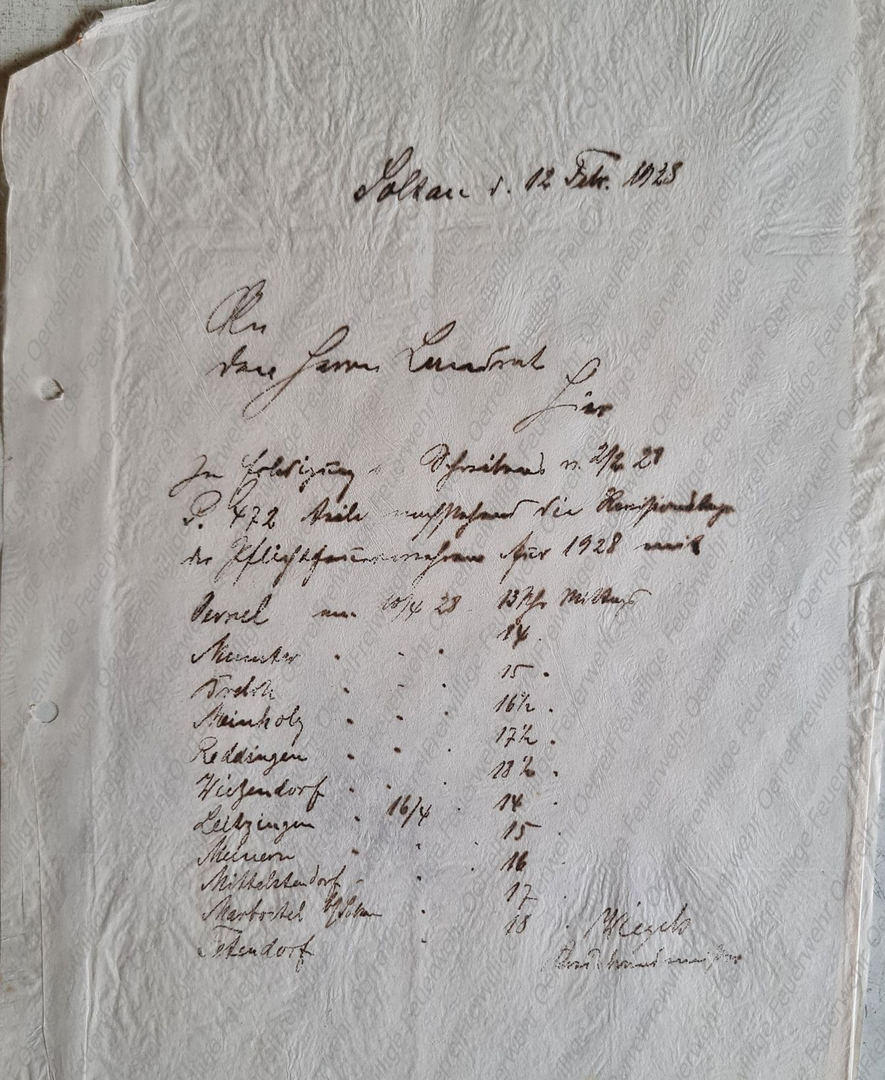 Soltau d. 12 Febr. 1928
An
den Herrn Landrat
Hier
In Erledigung d. Schreibens v. 2/2 28
P. 472 teile nachstehend die Revisionstage
der Pflichtfeuerwehren für 1928 mit
Oerrel am 10/4 28 13 Uhr Mittags
Munster " " " 14 "
Trelde " " " 15 "
Meinholz " " " 16½ "
Reddingen " " " 17½ "
Wietzendorf " " " 18½ "
Leitzingen " 16/4 " 14 "
Meinern " " " 15 "
Mittelstendorf " " " 16 "
Marbostel b/Soltau " 17 "
Tetendorf " 18 "
Wiegels
Kreisbrandmeister